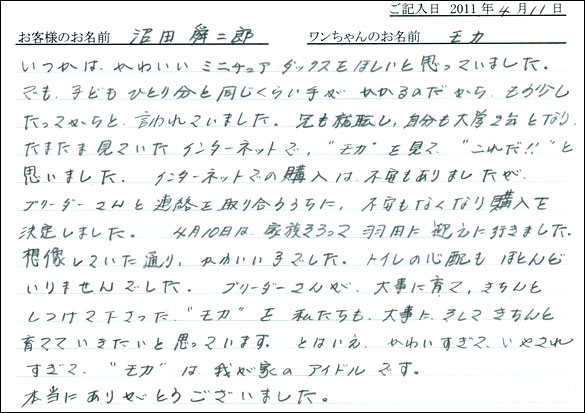 ご記入日 2011年4月11日
お客様のお名前 沼田 舜二郎 ワンちゃんのお名前 モカ
いつかは、かわいい ミニチュア ダックスをほしいと思っていました。
でも、子どもひとり分と同じくらい手がかかるのだから、もう少し
たってからと、言われていました。兄も就職し、自分も大学2年となり、
たまたま見ていた インターネットで、"モカ"を見て、"これだ!!"と
思いました。 インターネットでの購入は、不安もありましたが、
ブリーダーさんと連絡を取り合ううちに、不安もなくなり購入を
決定しました。 4月10日は、家族そろって 羽田に迎えに行きました。
想像していた通り、かわいい子でした。トイレの心配もほとんど
いりませんでした。 ブリーダーさんが、大事に育て、きちんと
しつけて下さった、"モカ"を 私たちも、大事に、そしてきちんと
育てていきたいと思っています。 とはいえ、かわいすぎて、いやされ
すぎて、"モカ"は、我が家のアイドルです。
本当にありがとうございました。